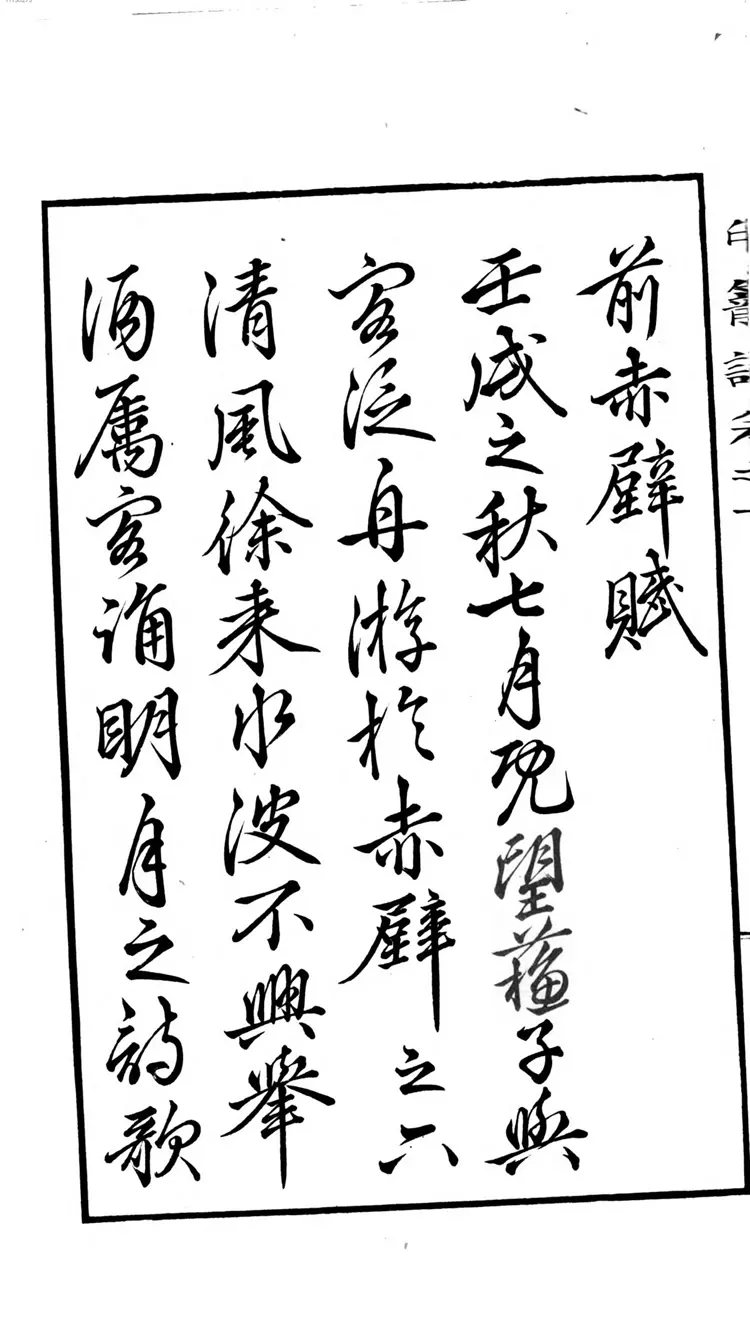 前赤壁賦
壬戌之秋七月既望蘇子與
客泛舟游於赤壁之下
清風徐來水波不興舉
酒屬客誦明月之詩歌